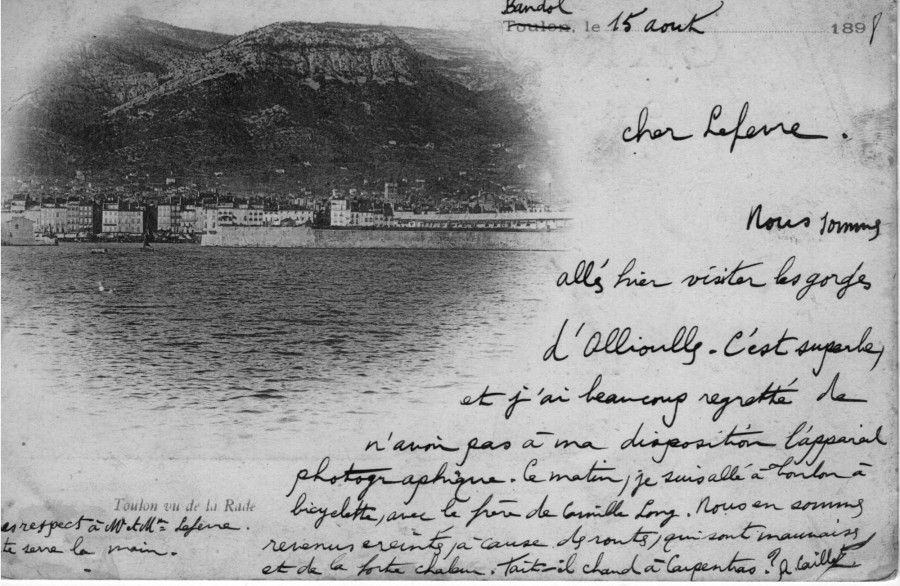 Bandol
Toulon, le 15 août 1898
cher Lefevre.
Nous sommes
allés hier visiter les gorges
d'Ollioulles. C'est superbe,
et j'ai beaucoup regretté de
n'avoir pas à ma disposition l'appareil
photographique. Ce matin, je suis allé à Toulon à
bicyclette, avec le frère de Camille Long. Nous en sommes
revenus éreintés, à cause des routes, qui sont mauvaises
et de la forte chaleur. Fait-il chaud à Carpentras?
Toulon vu de la Rade
respect à Mr et Mme Lefevre.
te serre la main.